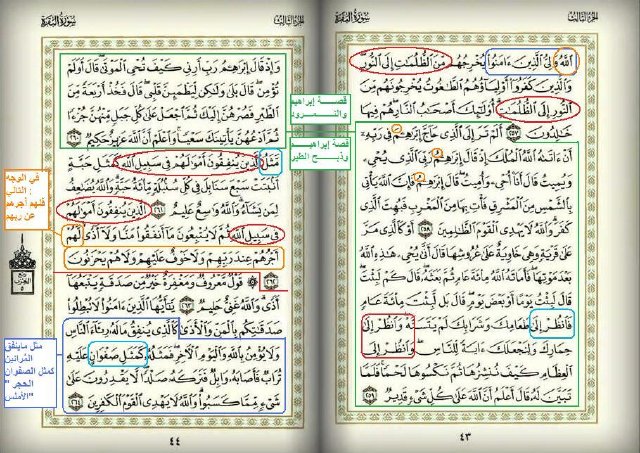 الجزء الثالث
سورة البقرة
ٱللَّهُ وَلِىُّ ٱلَّذِينَ ءَامَنُوا۟ يُخْرِجُهُم مِّنَ ٱلظُّلُمَٰتِ إِلَى ٱلنُّورِ
وَٱلَّذِينَ كَفَرُوٓا۟ أَوْلِيَآؤُهُمُ ٱلطَّٰغُوتُ يُخْرِجُونَهُم مِّنَ
ٱلنُّورِ إِلَى ٱلظُّلُمَٰتِ أُو۟لَٰٓئِكَ أَصْحَٰبُ ٱلنَّارِ هُمْ فِيهَا
خَٰلِدُونَ ٢٥٧ أَلَمْ تَرَ إِلَى ٱلَّذِى حَآجَّ إِبْرَٰهِۦمَ فِى رَبِّهِۦٓ
أَنْ ءَاتَىٰهُ ٱللَّهُ ٱلْمُلْكَ إِذْ قَالَ إِبْرَٰهِۦمُ رَبِّىَ ٱلَّذِى يُحْىِۦ
وَيُمِيتُ قَالَ أَنَا۠ أُحْىِۦ وَأُمِيتُ قَالَ إِبْرَٰهِۦمُ فَإِنَّ ٱللَّهَ يَأْتِى
بِٱلشَّمْسِ مِنَ ٱلْمَشْرِقِ فَأْتِ بِهَا مِنَ ٱلْمَغْرِبِ فَبُهِتَ ٱلَّذِى
كَفَرَ وَٱللَّهُ لَا يَهْدِى ٱلْقَوْمَ ٱلظَّٰلِمِينَ ٢٥٨ أَوْ كَٱلَّذِى مَرَّ
عَلَىٰ قَرْيَةٍ وَهِىَ خَاوِيَةٌ عَلَىٰ عُرُوشِهَا قَالَ أَنَّىٰ يُحْىِۦ هَٰذِهِ ٱللَّهُ
بَعْدَ مَوْتِهَا فَأَمَاتَهُ ٱللَّهُ مِا۟ئَةَ عَامٍ ثُمَّ بَعَثَهُۥ قَالَ كَمْ لَبِثْتَ
قَالَ لَبِثْتُ يَوْمًا أَوْ بَعْضَ يَوْمٍ قَالَ بَل لَّبِثْتَ مِا۟ئَةَ عَامٍ
فَٱنظُرْ إِلَىٰ طَعَامِكَ وَشَرَابِكَ لَمْ يَتَسَنَّهْ وَٱنظُرْ إِلَىٰ
حِمَارِكَ وَلِنَجْعَلَكَ ءَايَةً لِّلنَّاسِ وَٱنظُرْ إِلَى
ٱلْعِظَامِ كَيْفَ نُنشِزُهَا ثُمَّ نَكْسُوهَا لَحْمًا فَلَمَّا
تَبَيَّنَ لَهُۥ قَالَ أَعْلَمُ أَنَّ ٱللَّهَ عَلَىٰ كُلِّ شَىْءٍ قَدِيرٌ ٢٥٩
٤٣
قصة إبراهيم
والنمرود
قصة إبراهيم
وذبح الطير
الجزء الثالث
سورة البقرة
وَإِذْ قَالَ إِبْرَٰهِۦمُ رَبِّ أَرِنِى كَيْفَ تُحْىِ ٱلْمَوْتَىٰ قَالَ أَوَلَمْ
تُؤْمِن قَالَ بَلَىٰ وَلَٰكِن لِّيَطْمَئِنَّ قَلْبِى قَالَ فَخُذْ أَرْبَعَةً مِّنَ
ٱلطَّيْرِ فَصُرْهُنَّ إِلَيْكَ ثُمَّ ٱجْعَلْ عَلَىٰ كُلِّ جَبَلٍ مِّنْهُنَّ جُزْءًا
ثُمَّ ٱدْعُهُنَّ يَأْتِينَكَ سَعْيًا وَٱعْلَمْ أَنَّ ٱللَّهَ عَزِيزٌ حَكِيمٌ ٢٦٠
مَّثَلُ ٱلَّذِينَ يُنفِقُونَ أَمْوَٰلَهُمْ فِى سَبِيلِ ٱللَّهِ كَمَثَلِ حَبَّةٍ
أَنۢبَتَتْ سَبْعَ سَنَابِلَ فِى كُلِّ سُنۢبُلَةٍ مِّا۟ئَةُ حَبَّةٍ وَٱللَّهُ يُضَٰعِفُ
لِمَن يَشَآءُ وَٱللَّهُ وَٰسِعٌ عَلِيمٌ ٢٦١ ٱلَّذِينَ يُنفِقُونَ أَمْوَٰلَهُمْ
فِى سَبِيلِ ٱللَّهِ ثُمَّ لَا يُتْبِعُونَ مَآ أَنفَقُوا۟ مَنًّا وَلَآ أَذًى لَّهُمْ
أَجْرُهُمْ عِندَ رَبِّهِمْ وَلَا خَوْفٌ عَلَيْهِمْ وَلَا هُمْ يَحْزَنُونَ
٢٦٢ ۞ قَوْلٌ مَّعْرُوفٌ وَمَغْفِرَةٌ خَيْرٌ مِّن صَدَقَةٍ يَتْبَعُهَآ
أَذًى وَٱللَّهُ غَنِىٌّ حَلِيمٌ ٢٦٣ يَٰٓأَيُّهَا ٱلَّذِينَ ءَامَنُوا۟ لَا تُبْطِلُوا۟
صَدَقَٰتِكُم بِٱلْمَنِّ وَٱلْأَذَىٰ كَٱلَّذِى يُنفِقُ مَالَهُۥ رِئَآءَ ٱلنَّاسِ
وَلَا يُؤْمِنُ بِٱللَّهِ وَٱلْيَوْمِ ٱلْءَاخِرِ فَمَثَلُهُۥ كَمَثَلِ صَفْوَانٍ عَلَيْهِ
تُرَابٌ فَأَصَابَهُۥ وَابِلٌ فَتَرَكَهُۥ صَلْدًا لَّا يَقْدِرُونَ عَلَىٰ
شَىْءٍ مِّمَّا كَسَبُوا۟ وَٱللَّهُ لَا يَهْدِى ٱلْقَوْمَ ٱلْكَٰفِرِينَ ٢٦٤
٤٤
في الوجه
التالي :
فلهم أجرهم
عن ربهم
ربع
الحزب
٥
مثل ماينفق
المُرائين
كمثل الصفوان
" الحجر
الأملس"